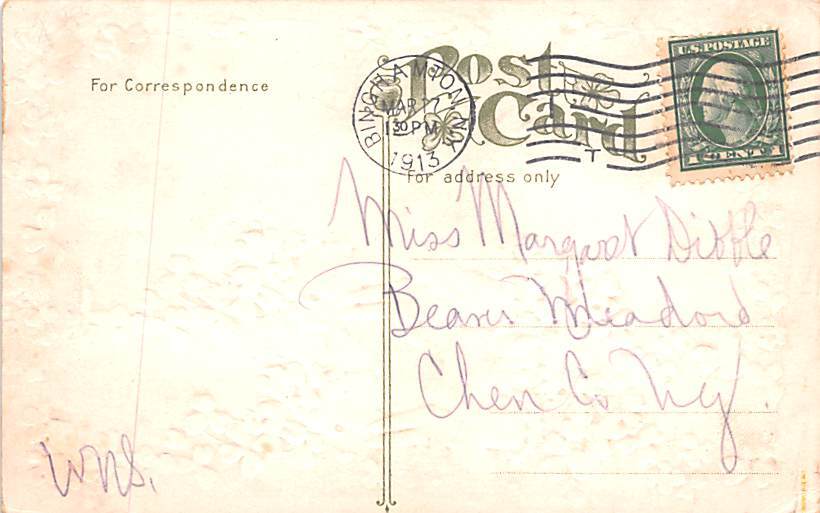 Post Card
For Correspondence
BINGHAMTON, N.Y.
MAR 27
1 30 PM
1913
T
U.S. POSTAGE
1 CENT 1
For address only
Miss Margaret Dibble
Beaver Meadow
Chen Co N.Y.
WNS.